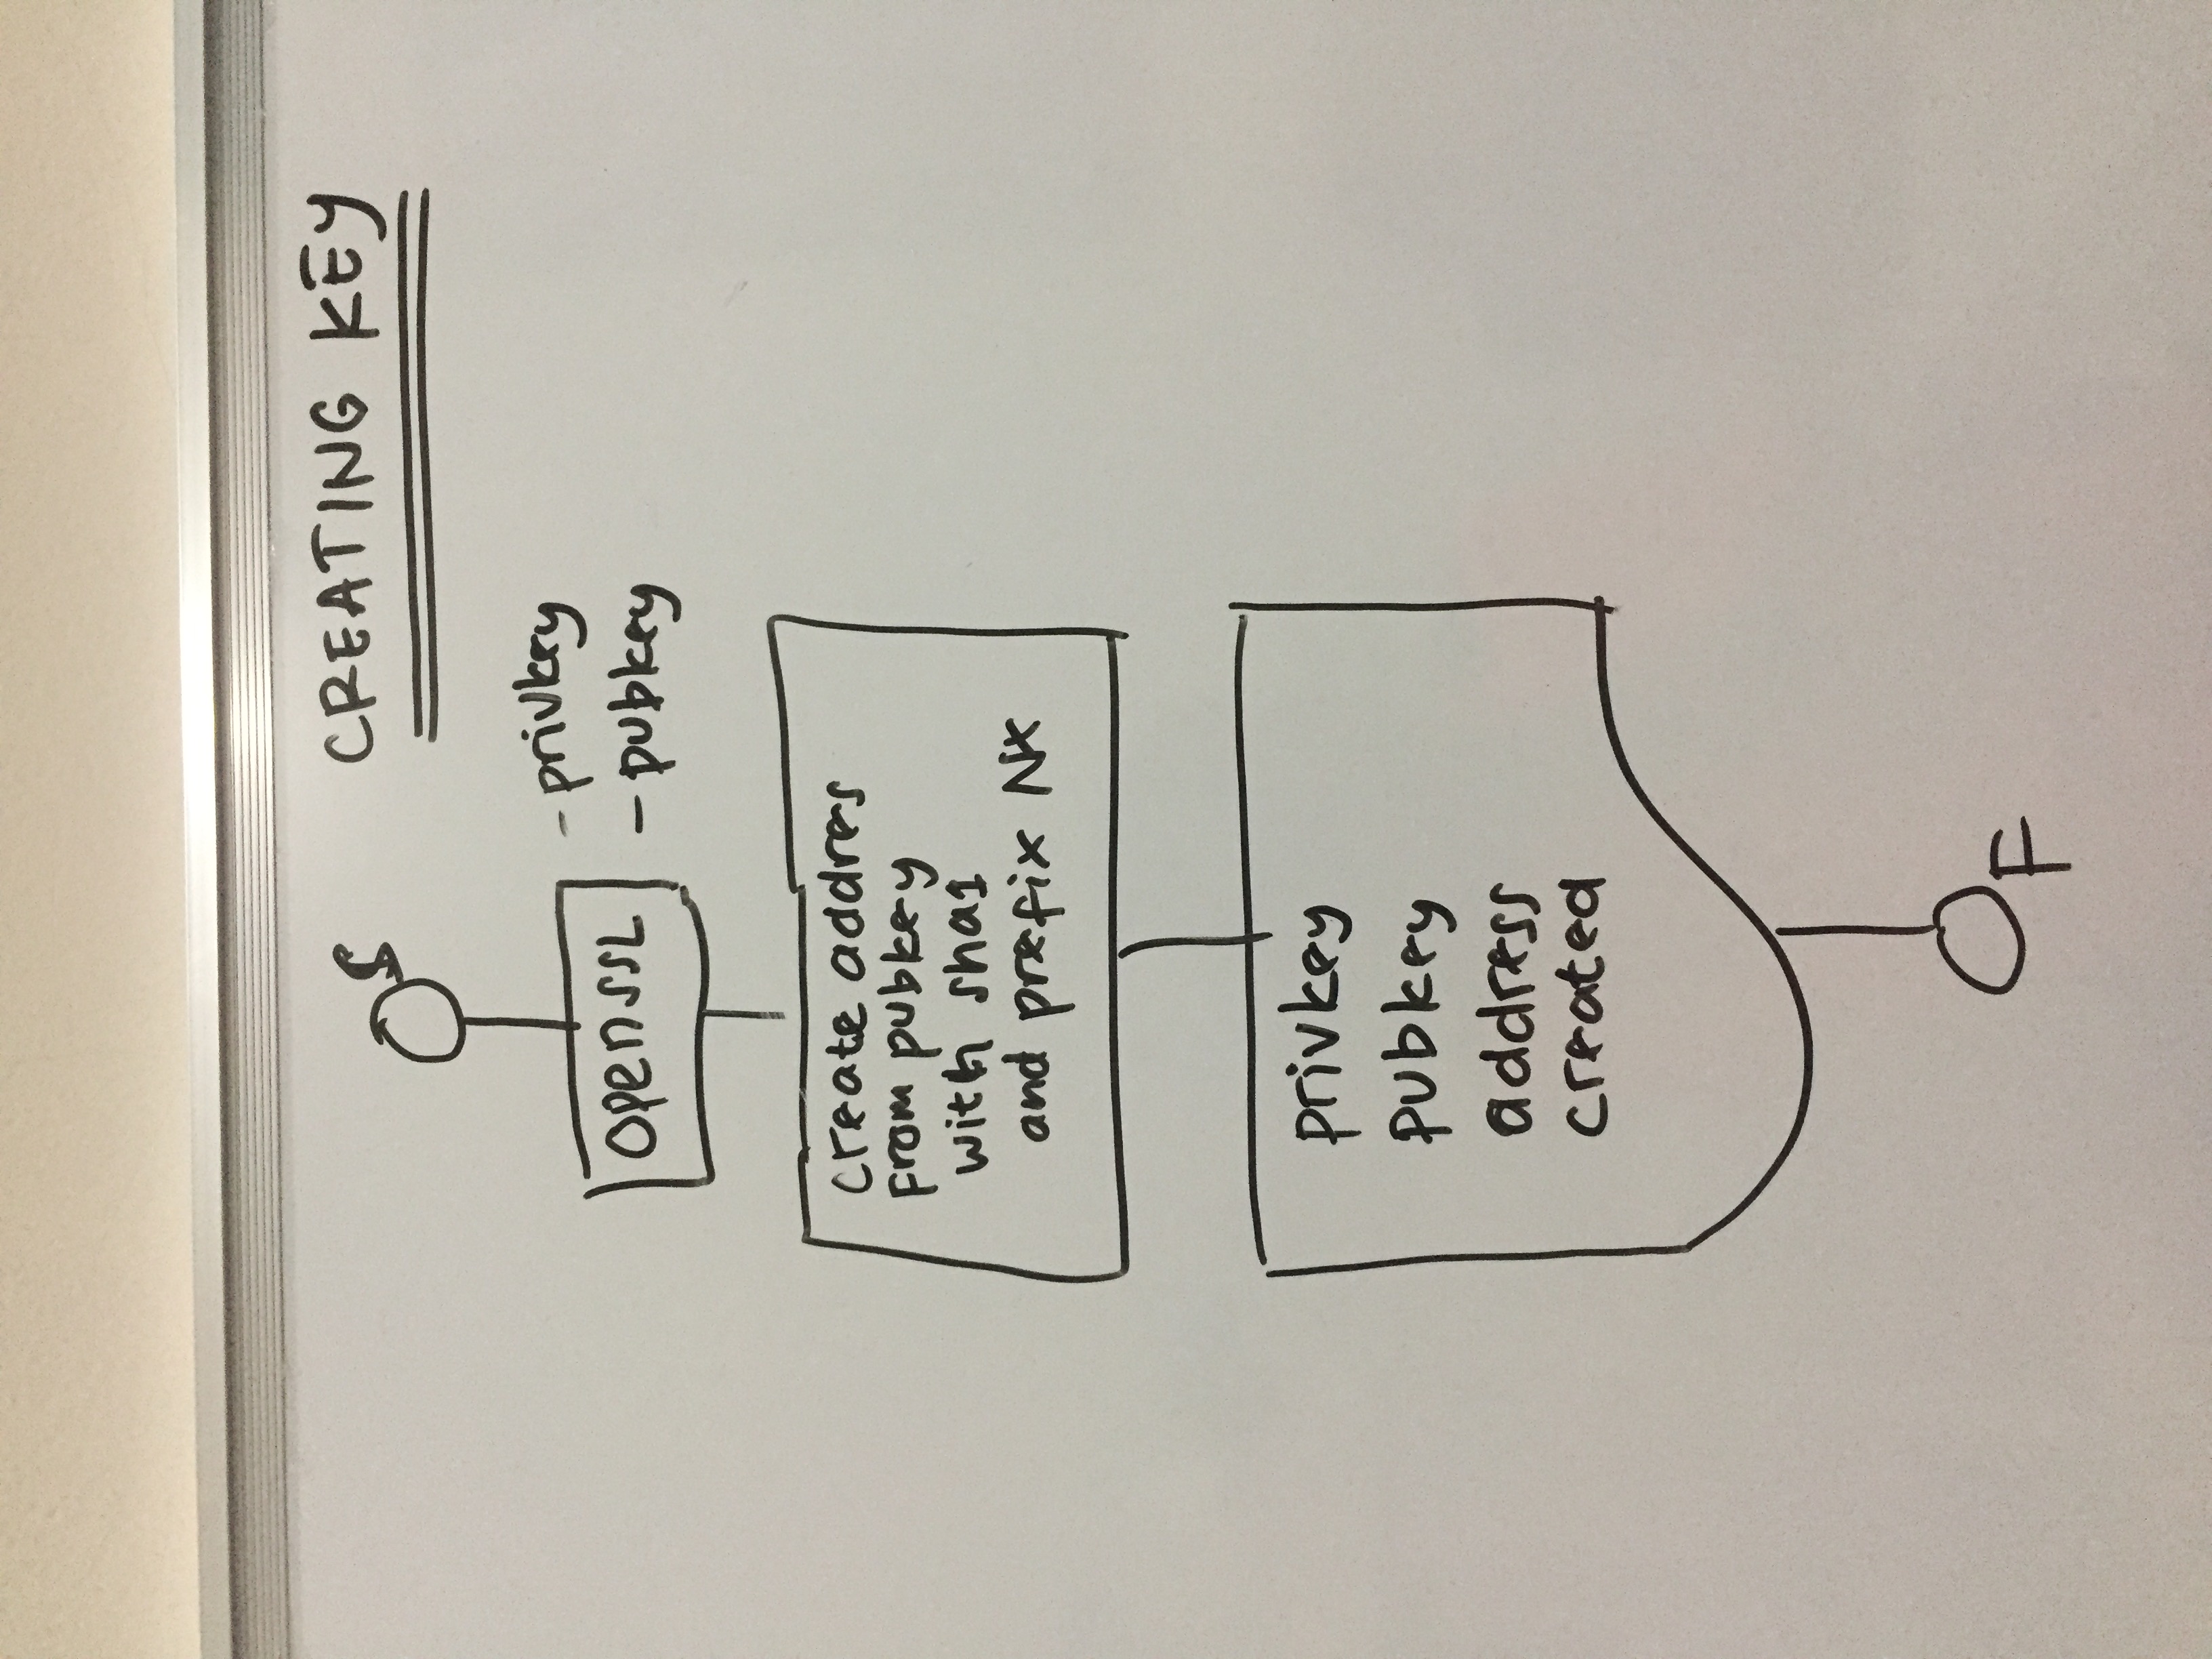 S
CREATING KEY
OPENSSL
- privkey
- pubkey
create addres
from pubkey
with sha1
and prefix Nx
privkey
pubkey
address
created
F